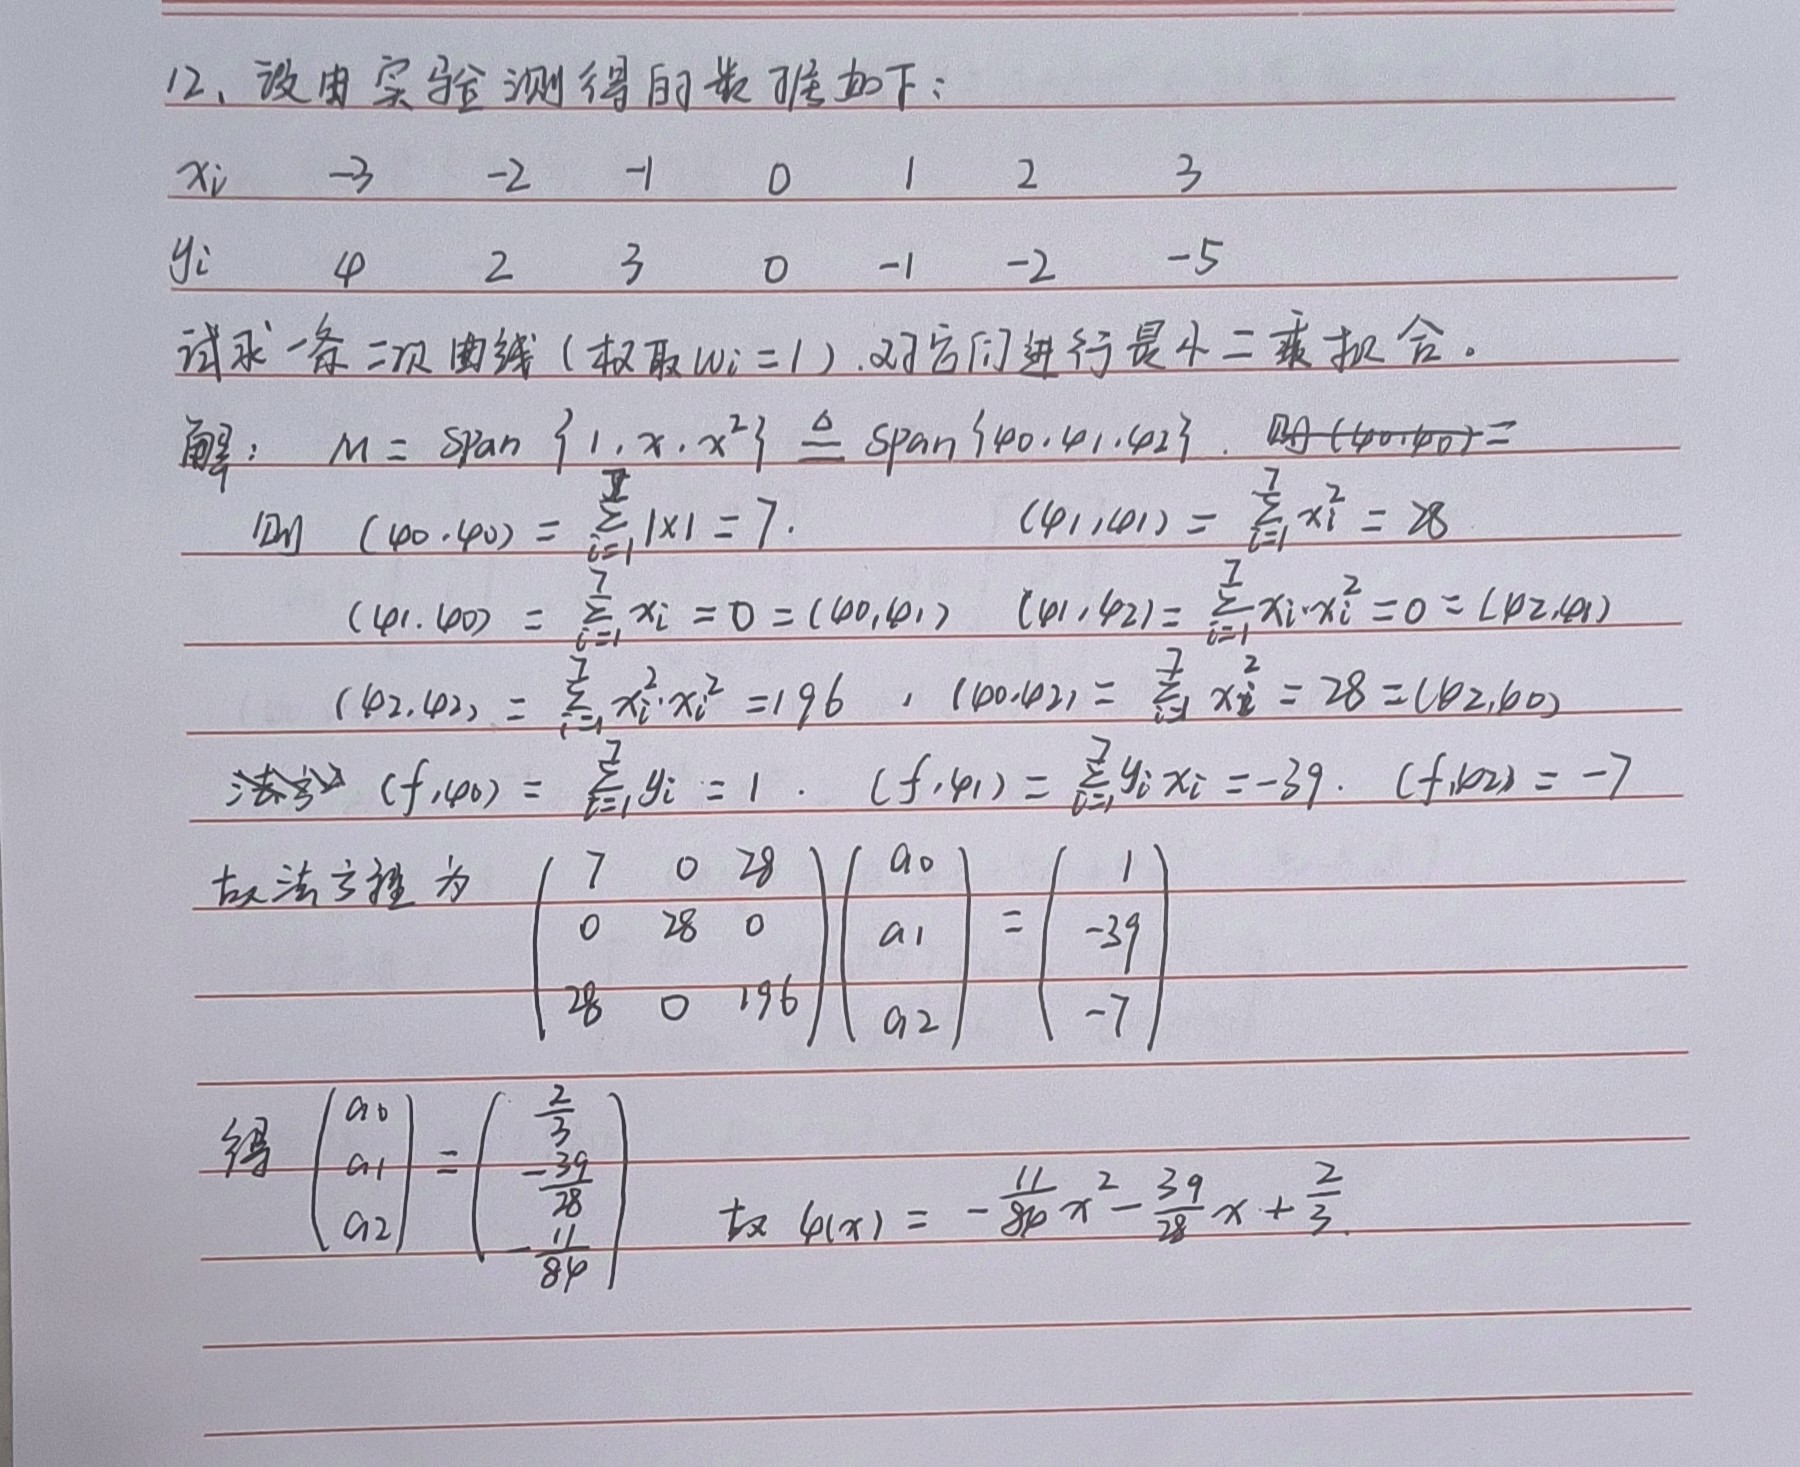 12、设由实验测得的数据如下：
xi -3 -2 -1 0 1 2 3
yi 4 2 3 0 -1 -2 -5
试求一条二次曲线（权取wi=1）.对它们进行最小二乘拟合。
解： M = span {1, x, x²} ≜ span{φ0, φ1, φ2}.
则 (φ0, φ0) = Σ_{i=1}^{7} 1×1 = 7. (φ1, φ1) = Σ_{i=1}^{7} xi² = 28
(φ1, φ0) = Σ_{i=1}^{7} xi = 0 = (φ0, φ1) (φ1, φ2) = Σ_{i=1}^{7} xi·xi² = 0 = (φ2, φ1)
(φ2, φ2) = Σ_{i=1}^{7} xi²·xi² = 196 , (φ0, φ2) = Σ_{i=1}^{7} xi² = 28 = (φ2, φ0)
(f, φ0) = Σ_{i=1}^{7} yi = 1 . (f, φ1) = Σ_{i=1}^{7} yi xi = -39. (f, φ2) = -7
故法方程为 (7 0 28; 0 28 0; 28 0 196) (a0; a1; a2) = (1; -39; -7)
得 (a0; a1; a2) = (2/3; -39/28; -11/84) 故 φ(x) = -11/84 x² - 39/28 x + 2/3.